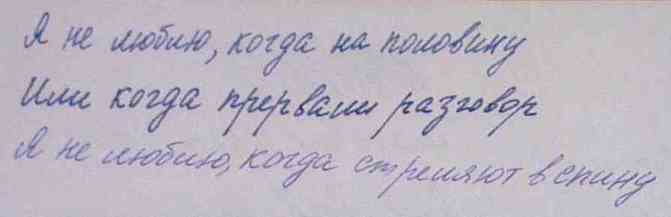 Я не люблю, когда на половину
Или когда прервали разговор
Я не люблю, когда стреляют в спину